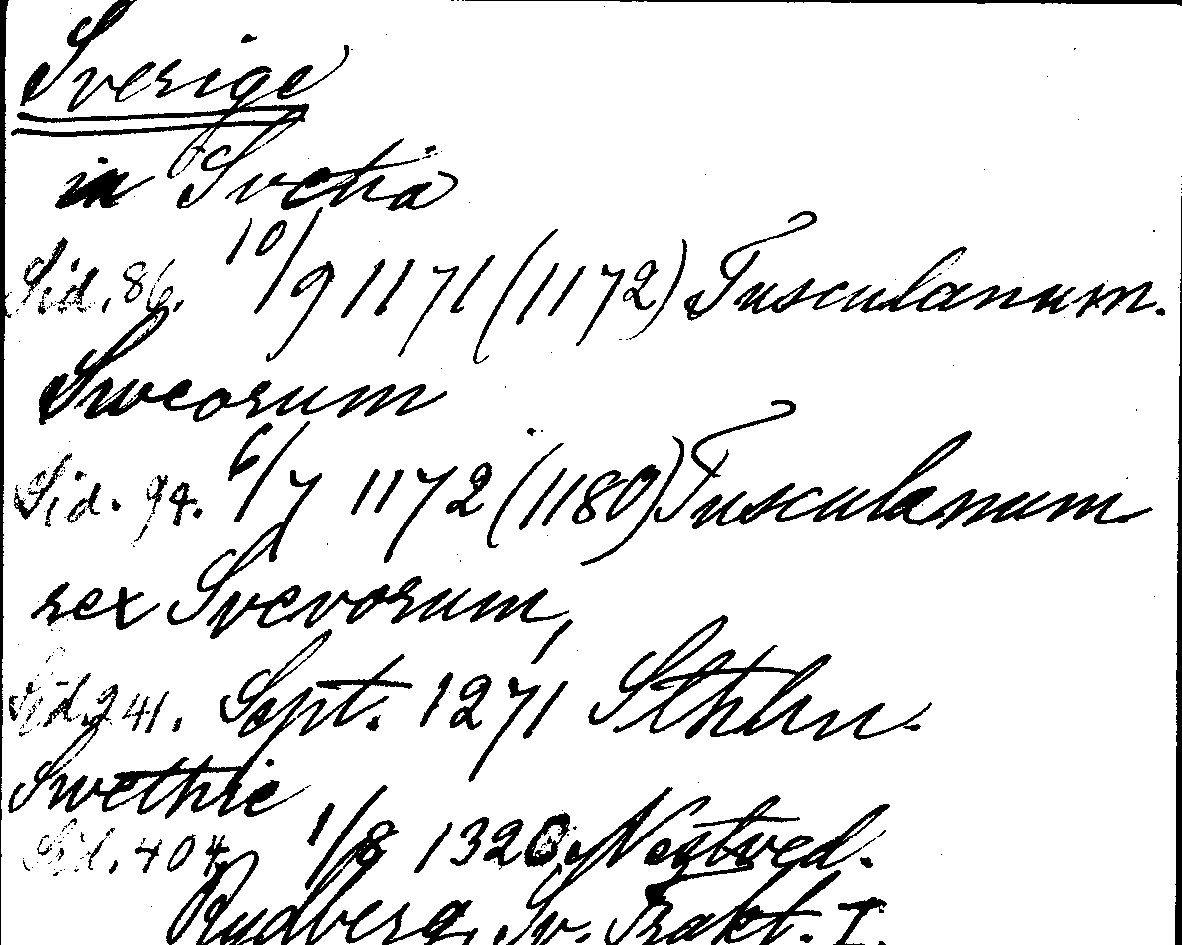 Sverige
in Svetia
Sid. 86. 10/9 1171 (1172) Tusculanum.
Sweorum
Sid. 94. 6/7 1172 (1180) Tusculanum
rex Svevorum,
Sid 241. Sept. 1271 Sthlm.
Swethie
Sid. 404. 1/8 1320 Nestved.
Rydberg, Sv. Trakt. I.